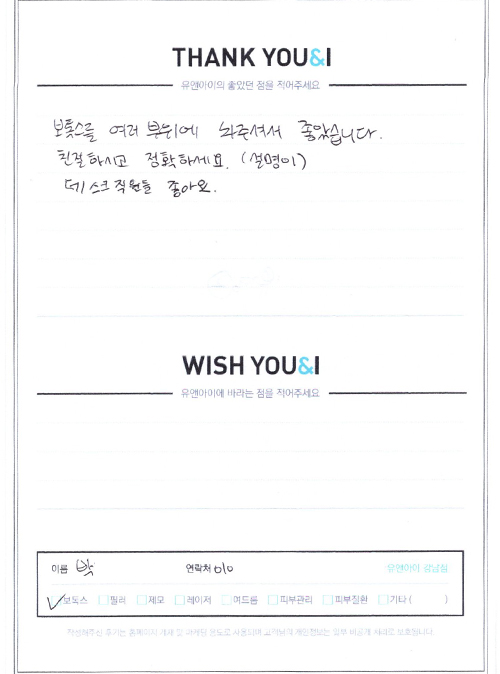 THANK YOU&I
유앤아이의 좋았던 점을 적어주세요
보톡스를 여러 부위에 놔주셔서 좋았습니다.
친절하시고 정확하세요. (설명이)
데스크 직원들 좋아요.
WISH YOU&I
유앤아이에 바라는 점을 적어주세요
이름 박 연락처 010 유앤아이 강남점
보톡스 필러 제모 레이저 여드름 피부관리 피부질환 기타 ( )
작성해주신 후기는 홈페이지 게재 및 마케팅 용도로 사용되며 고객님의 개인정보는 일부 비공개 처리로 보호됩니다.